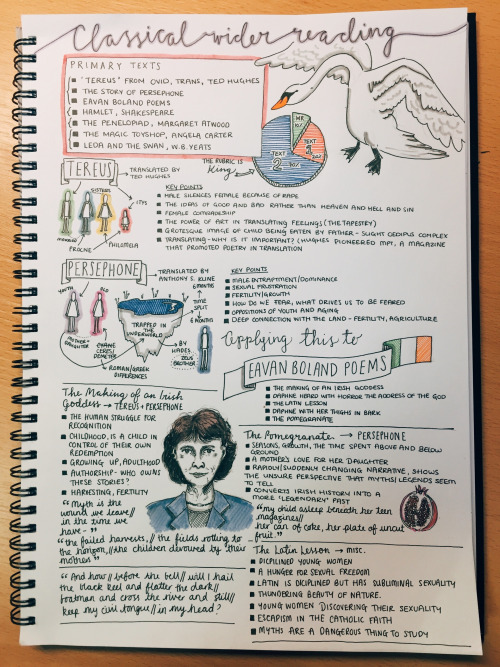 Classical wider reading
PRIMARY TEXTS
"TEREUS" FROM OVID, TRANS, TED HUGHES
THE STORY OF PERSEPHONE
EAVAN BOLAND POEMS
HAMLET, SHAKESPEARE
THE PENELOPIAD, MARGARET ATWOOD
THE MAGIC TOYSHOP, ANGELA CARTER
LEDA AND THE SWAN, W.B. YEATS
WR
10%
TEXT
1
TEXT
2
THE RUBRIC IS
King
TEREUS
TRANSLATED BY
TED HUGHES
SISTERS
ITYS
PROCNE
PHILOMELA
KEY POINTS
MALE SILENCES FEMALE BECAUSE OF RAPE
THE IDEAS OF GOOD AND BAD RATHER THAN HEAVEN AND HELL AND SIN
FEMALE COMRADESHIP
THE POWER OF ART IN TRANSLATING FEELINGS (THE TAPESTRY)
GROTESQUE IMAGE OF CHILD BEING EATEN BY FATHER - SLIGHT OEDIPUS COMPLEX
TRANSLATING - WHY IS IT IMPORTANT? (HUGHES PIONEERED MPT, A MAGAZINE
THAT PROMOTED POETRY IN TRANSLATION
PERSEPHONE
TRANSLATED BY
ANTHONY S. KLINE
YOUTH
OLD
MOTHER +
DAUGHTER
CERES/
DEMETER
ROMAN/GREEK
DIFFERENCES
TRAPPED IN
THE
UNDERWORLD
6 MONTHS
TIME
SPLIT
6 MONTHS
BY
HADES,
ZEUS'
BROTHER
KEY POINTS
MALE INTRAPTMENT/DOMINANCE
SEXUAL FRUSTRATION
FERTILITY/GROWTH
HOW DO WE FEAR, WHAT DRIVES US TO BE FEARED
OPPOSITIONS OF YOUTH AND AGING
DEEP CONNECTION WITH THE LAND - FERTILITY, AGRICULTURE
applying this to
EAVAN BOLAND POEMS
THE MAKING OF AN IRISH GODDESS
DAPHNE HEARD WITH HORROR THE ADDRESS OF THE GOD
THE LATIN LESSON
DAPHNE WITH HER THIGHS IN BARK
THE POMEGRANATE
The Making of an Irish
Goddess → TEREUS + PERSEPHONE
THE HUMAN STRUGGLE FOR
RECOGNITION
CHILDHOOD, IS A CHILD IN
CONTROL OF THEIR OWN
REDEMPTION
GROWING UP, ADULTHOOD
AUTHORSHIP - WHO OWNS
THESE STORIES?
HARVESTING, FERTILITY
"myth is the
wound we leave//
in the time we
have - "
"the failed harvests,// the fields rotting to
the horizon,//the children devoured by their
mothers"
"And how// before the bell// will I hail
the black keel and flatter the dark//
boatman and cross the river and still//
keep my civil tongue// in my head?
The Pomegranate → PERSEPHONE
SEASONS, GROWTH, THE TIME SPENT ABOVE AND BELOW
GROUND
A MOTHER'S LOVE FOR HER DAUGHTER
RAPIDLY/SUDDENLY CHANGING NARRATIVE, SHOWS
THE UNSURE PERSPECTIVE THAT MYTHS/LEGENDS SEEM
TO TELL
CONVERTS IRISH HISTORY INTO A
MORE 'LEGENDARY' PAST
"my child asleep beneath her teen
magazines//
her can of coke, her plate of uncut
fruit."
The Latin Lesson → misc.
DICIPLINED YOUNG WOMEN
A HUNGER FOR SEXUAL FREEDOM
LATIN IS DICIPLINED BUT HAS SUBLIMINAL SEXUALITY
THUNDERING BEAUTY OF NATURE.
YOUNG WOMEN DISCOVERING THEIR SEXUALITY
ESCAPISM IN THE CATHOLIC FAITH
MYTHS ARE A DANGEROUS THING TO STUDY